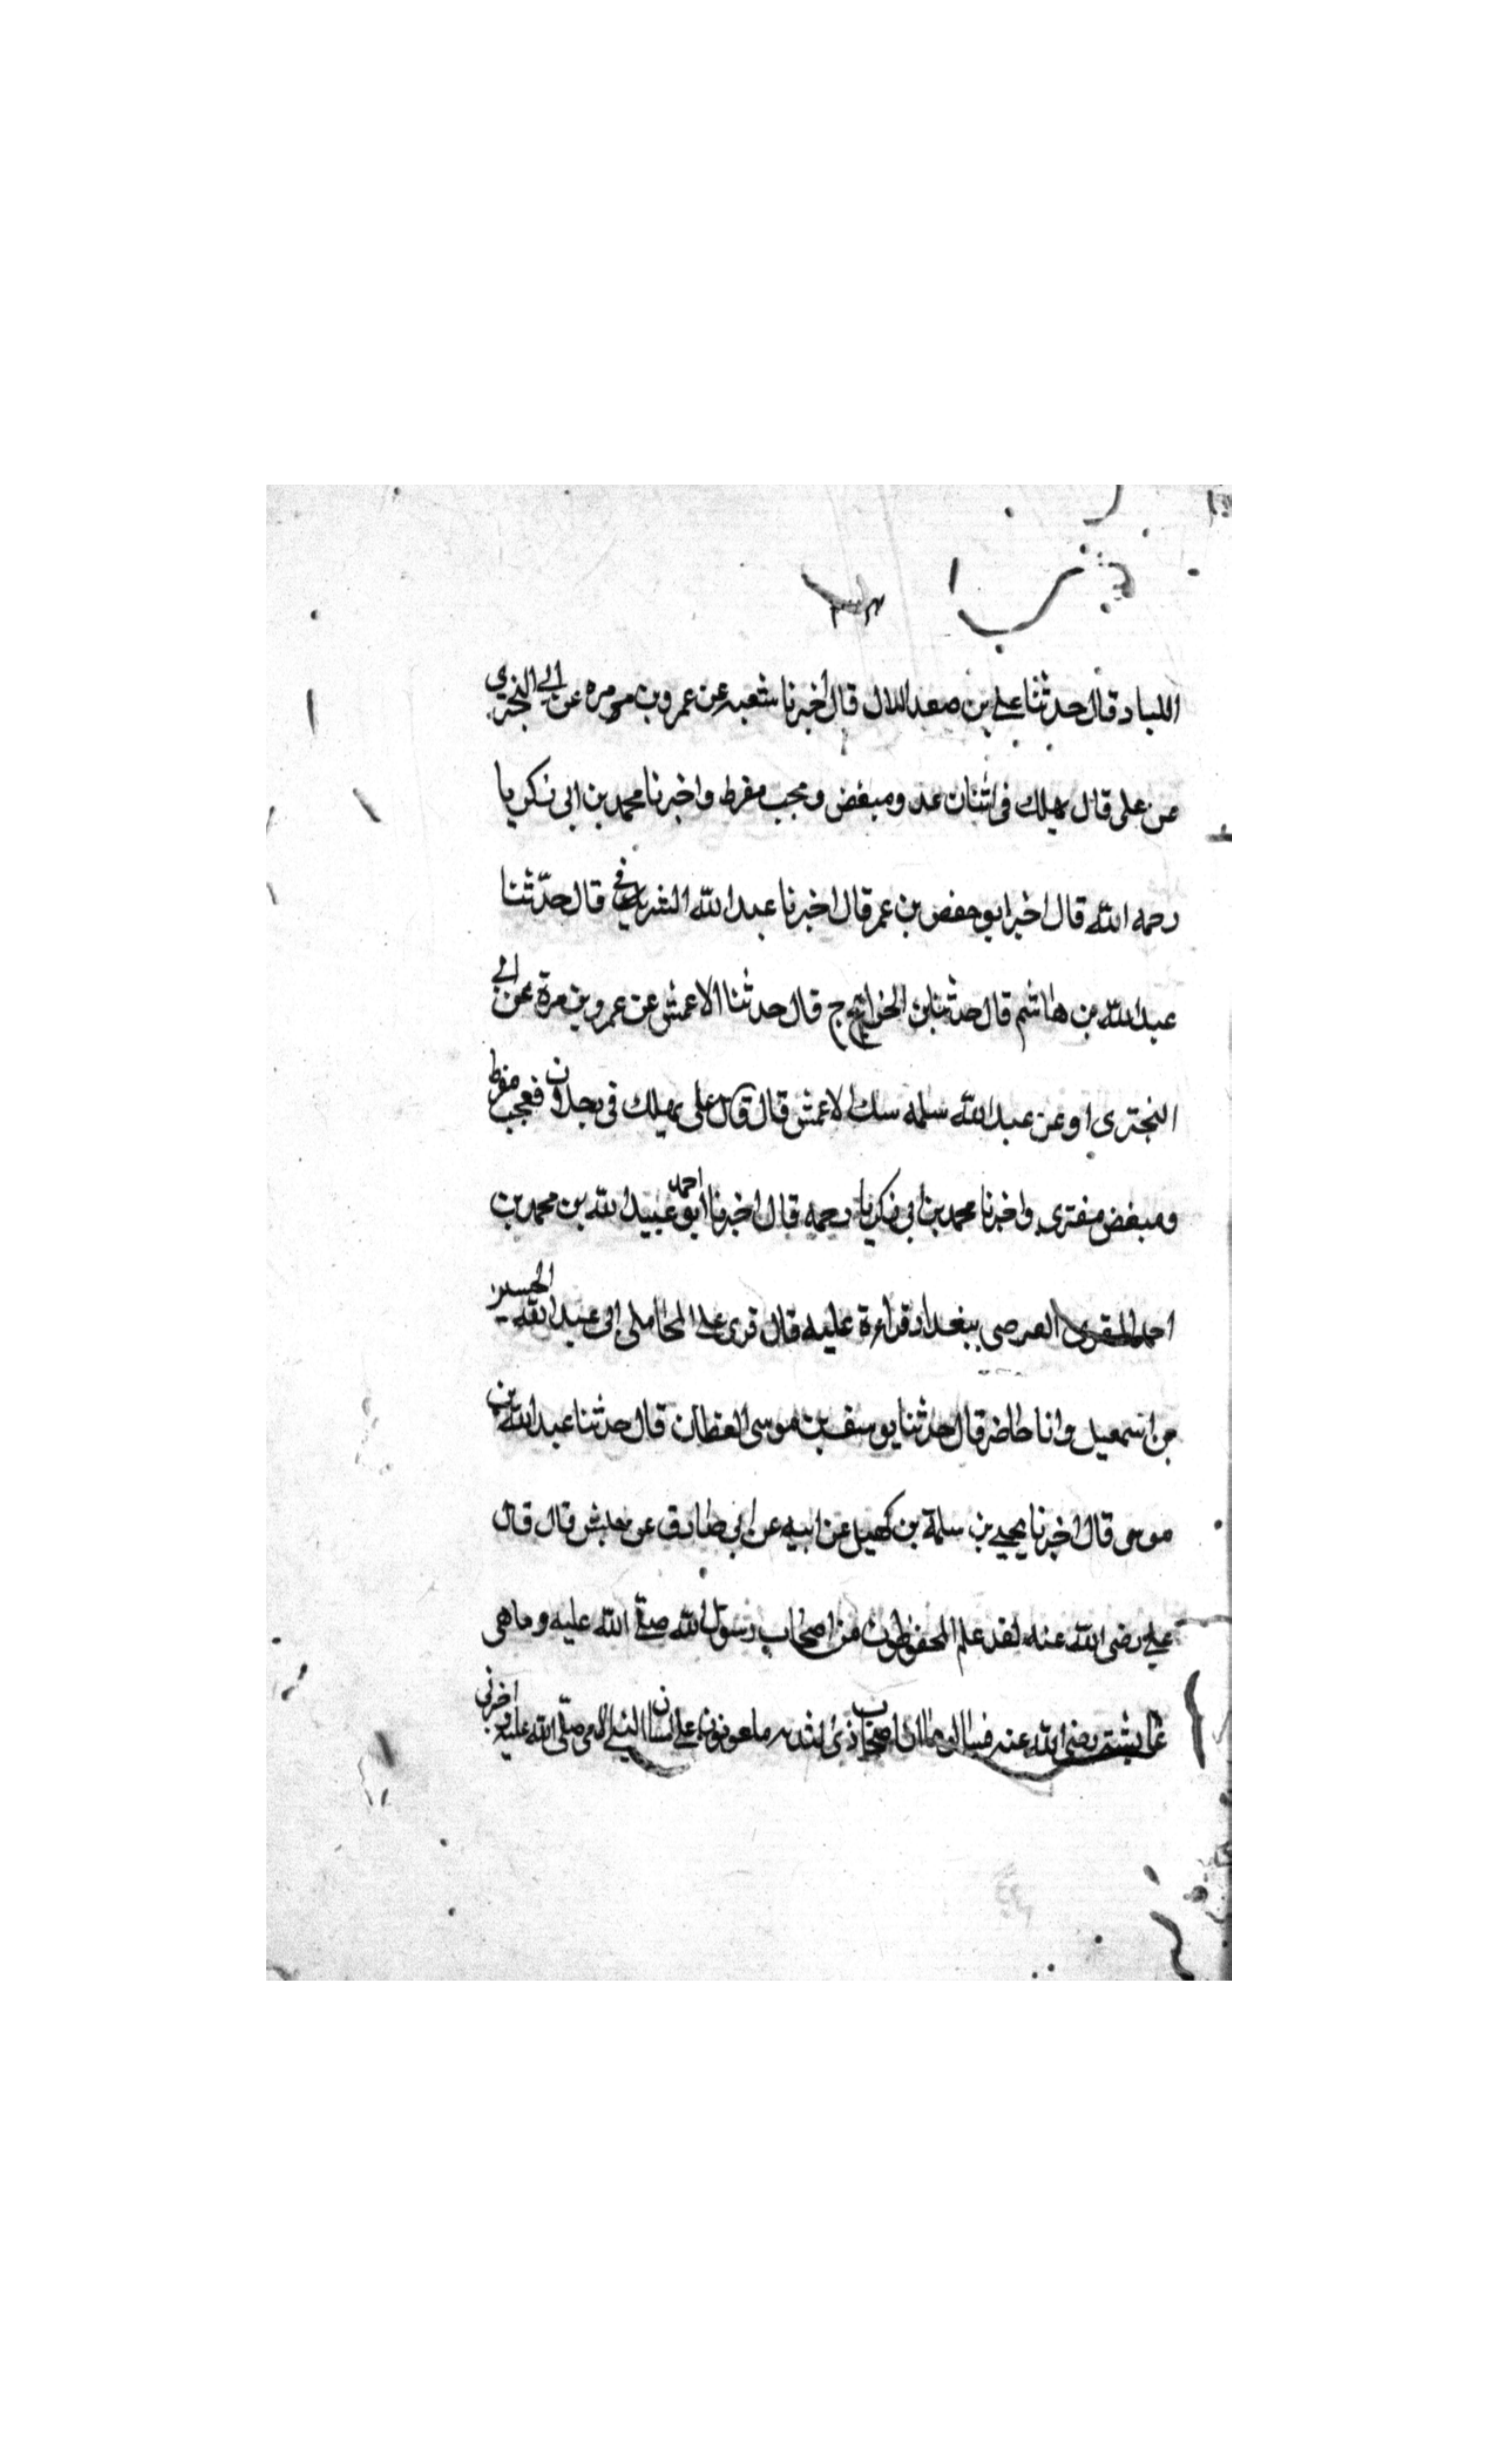 اللباد قال حدثنا علي بن صعد اللال قال اخبرنا شعبه عن عمرو بن مرمره عن ابي النجتري
عن على قال يهلك فى اثنان عدو مبغض و محب مفرط واخبرنا محمد بن ابى زكريا
رحمه الله قال اخبر ابو حفص بن عمر قال اخبرنا عبد الله الشرقي قال حدّثنا
عبد الله بن هاشم قال حدثنا قال حدثنا الاعمش عن عمرو بن مرة عن ابي
النجترى او عن عبد الله سلمه سك الاعمش قال قال على يهلك فى رجلان فمحب مفرط
ومبغض مفترى واخبرنا محمد بن ابى زكريا رحمه قال اخبرنا ابو احمد عبيد الله بن محمد بن
احمد المقرى العرصى ببغداد قراءة عليه قال قرى على المحاملى ابى عبد الله الحسين
بن اسمعيل وانا حاضر قال حدثنا يوسف بن موسى القطان قال حدثنا عبد الله بن
موسى قال اخبرنا يحيى بن سلمة بن كهيل عن ابيه عن ابى صادق عن قال قال
علي رضى الله عنه لقد علم المحفوظون من اصحاب رسول الله صلى الله عليه و ماهى
عايشة رضى الله عنه اصحاب ذى ملعونون على لسان النبي الامى صلى الله عليه واخبرنى